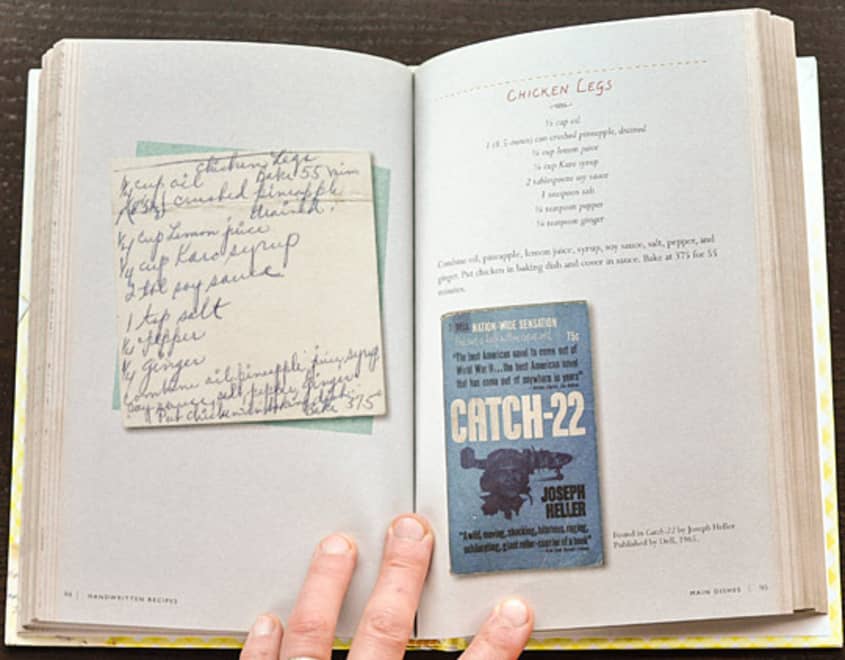 chicken Legs
¼ cup oil Bake 55 min
crushed pineapple
drained.
¼ cup Lemon juice
¼ cup Karo syrup
2 tbl soy sauce
1 tsp salt
¼ Pepper
¼ Ginger
Combine oil, pineapple, juice, syrup
soy sauce, salt, pepper, ginger
Put chicken in baking dish.
Bake 375°
HANDWRITTEN RECIPES
CHICKEN LEGS
¼ cup oil
1 (8.5-ounce) can crushed pineapple, drained
¼ cup lemon juice
¼ cup Karo syrup
2 tablespoons soy sauce
1 teaspoon salt
¼ teaspoon pepper
¼ teaspoon ginger
Combine oil, pineapple, lemon juice, syrup, soy sauce, salt, pepper, and
ginger. Put chicken in baking dish and cover in sauce. Bake at 375 for 55
minutes.
DELL NATION-WIDE SENSATION
75c
"The best American novel to come out of
World War II...the best American novel
that has come out of anywhere in years"
CATCH-22
JOSEPH
HELLER
"A wild, moving, shocking, hilarious, raging,
exhilarating, giant roller-coaster of a book"
Found in Catch-22 by Joseph Heller
Published by Dell, 1965.
MAIN DISHES | 95